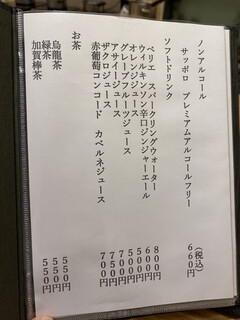 ノンアルコール
サッポロ プレミアムアルコールフリー (税込) 660円
ソフトドリンク
ペリエ スパークリングウォーター 800円
ウィルキンソン辛口ジンジャーエール 600円
オレンジジュース 500円
グレープフルーツジュース 500円
アサイージュース 700円
ザクロジュース 750円
赤葡萄コンコード カベルネジュース 700円
お茶
烏龍茶 550円
緑茶 550円
加賀棒茶 550円